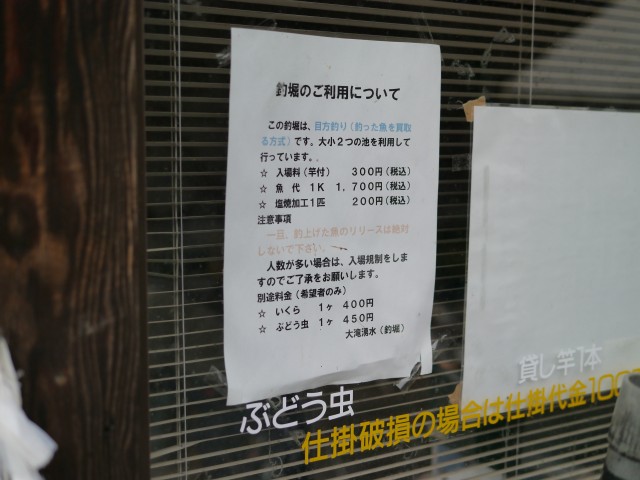 釣堀のご利用について
この釣堀は、目方釣り（釣った魚を買取
る方式）です。大小２つの池を利用して
行っています。
☆ 入場料（竿付） ３００円（税込）
☆ 魚 代 １Ｋ １，７００円（税込）
☆ 塩焼加工１匹 ２００円（税込）
注意事項
一旦、釣上げた魚のリリースは絶対
しないで下さい。
人数が多い場合は、入場規制をしま
すのでご了承をお願いします。
別途料金（希望者のみ）
☆ いくら １ヶ ４００円
☆ ぶどう虫 １ヶ ４５０円
大滝湧水（釣堀）
貸し竿1本
ぶどう虫
仕掛破損の場合は仕掛代金100